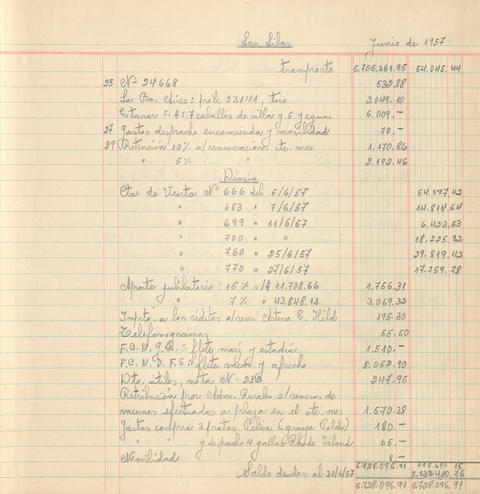 Las Lilas Junio de 1957
transporte 5.706.361.95 54.045.44
25 Nº 24668 532.28
La Bs. Aires: pól. 23141, toro 2.049.10
Estancias S.A: 7 caballos de silla y 5 yeguas 6.009.-
27 Gastos despacho encomienda y movilidad 70.-
29 Retención 10% s/remuneracion cte. mes 1.170.86
" 5% " 2.192.46
Diario
Cta. de Venta Nº 666 del 5/6/57 54.597.42
" 683 " 7/6/57 14.814.64
" 699 " 11/6/57 6.423.53
" 750 " " 18.225.32
" 760 " 25/6/57 29.819.42
" 770 " 27/6/57 17.759.78
Aporte jubilatorio: 15% s/$ 11.708.66 1.756.31
" 7% " 43.848.13 3.069.32
Impto. a los réditos Arturo E. Hild 195.30
Telefonogramas 55.50
F.C.N.G.R.: flete maíz y estadía 1.510.-
F.C.N.D.F.S.: flete vacas y afrecho 2.052.90
Dto. útiles, nota Nº 247.95
Retribución por Adm. Rurales s/remesas de
vacunos efectuadas a plaza en el cte. mes 1.570.38
Gastos compra 3 patas Pekin (granja Colón) 180.-
" " y despacho 4 gallos Rhode Island 65.-
Movilidad 8.-
5.728.096.91 195.686.15
Saldo deudor al 30/6/57 5.532.410.76
5.728.096.91 5.728.096.91